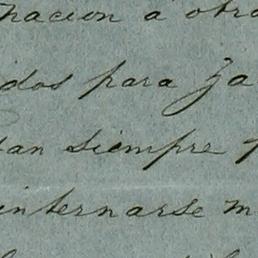 nacion a otra
dos para ja
an siempre
internarse m